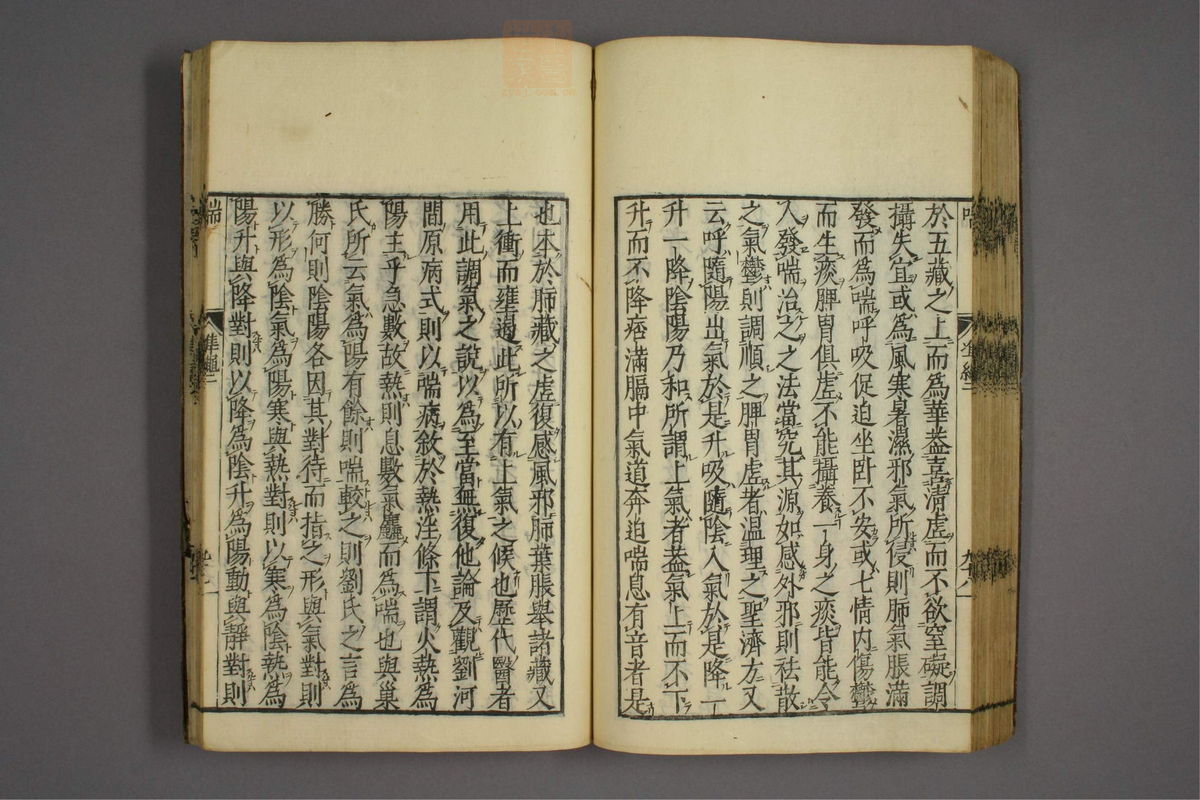 於五藏之上而爲華葢喜清虛而不欲窒礙調
攝失宜或爲風寒暑濕邪氣所侵則肺氣脹滿
發而爲喘呼吸促迫坐卧不安或七情内傷鬱
而生痰脾胃俱虛不能攝養一身之痰皆能令
人發喘治之之法當究其源如感外邪則祛散
之氣鬱則調順之脾胃虛者温理之聖濟方又
云呼隨陽出氣於是升吸隨陰入氣於是降一
升一降陰陽乃和所謂上氣者葢氣上而不下
升而不降痞滿膈中氣道奔迫喘息有音者是
也本於肺藏之虛復感風邪肺葉脹舉諸藏又
上衝而壅遏此所以有上氣之候也歷代醫者
用此調氣之說以爲至當無復他論及觀劉河
間原病式則以喘病敘於熱淫條下謂火熱爲
陽主乎急數故熱則息數氣麤而爲喘也與巢
氏所云氣爲陽有餘則喘較之則劉氏之言爲
勝何則陰陽各因其對待而指之形與氣對則
以形爲陰氣爲陽寒與熱對則以寒爲陰熱爲
陽升與降對則以降爲陰升爲陽動與靜對則
喘
準繩二